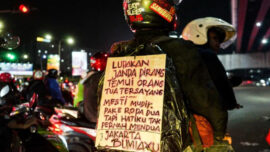 LUPAKAN
JANDA DIRANS
TEMUI ORANG
TUA TERSAYANG
MESTI MUDIK
PAKE RODA DUA
TAPI HATIKU TAK
PERNAH MENDUA
JAKARTA
BUMIAYU